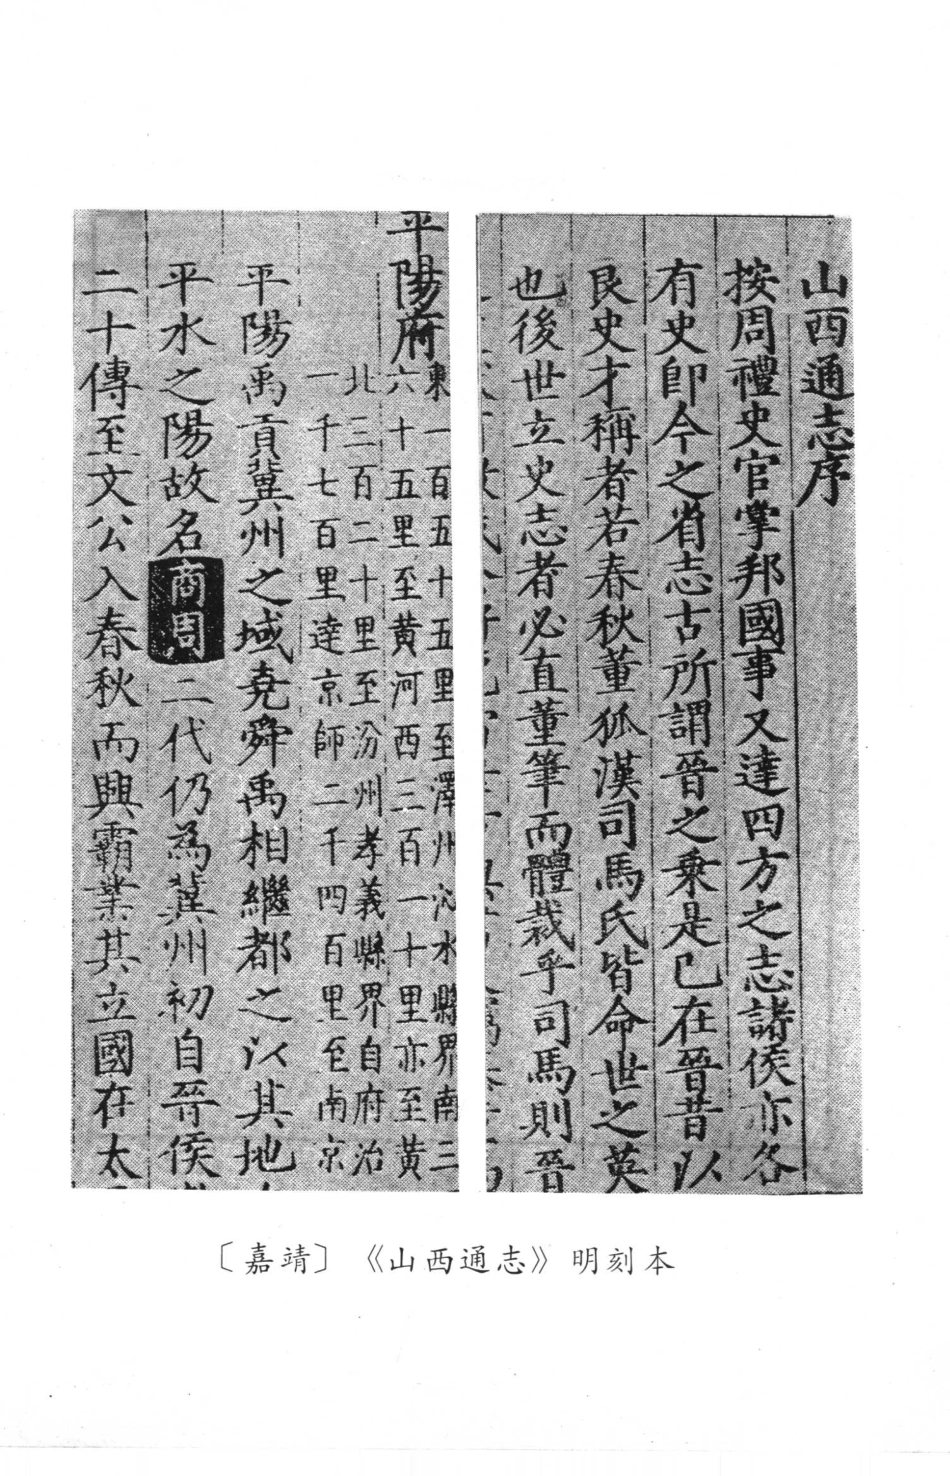 山西通志序
按周禮史官掌邦國事又達四方之志諸侯亦各
有史卽今之省志古所謂晉之乘是已在晉昔以
良史才稱者若春秋董狐漢司馬氏皆命世之英
也後世立史志者必直董筆而體裁乎司馬則晉
平陽府
東一百五十五里至澤州沁水縣界南三
六十五里至黃河西三百一十里亦至黃
北三百二十里至汾州孝義縣界自府治
一千七百里達京師二千四百里至南京
平陽禹貢冀州之域堯舜禹相繼都之以其地
平水之陽故名商周二代仍為冀州初自晉侯
二十傳至文公入春秋而興霸業其立國在太
〔嘉靖〕《山西通志》明刻本